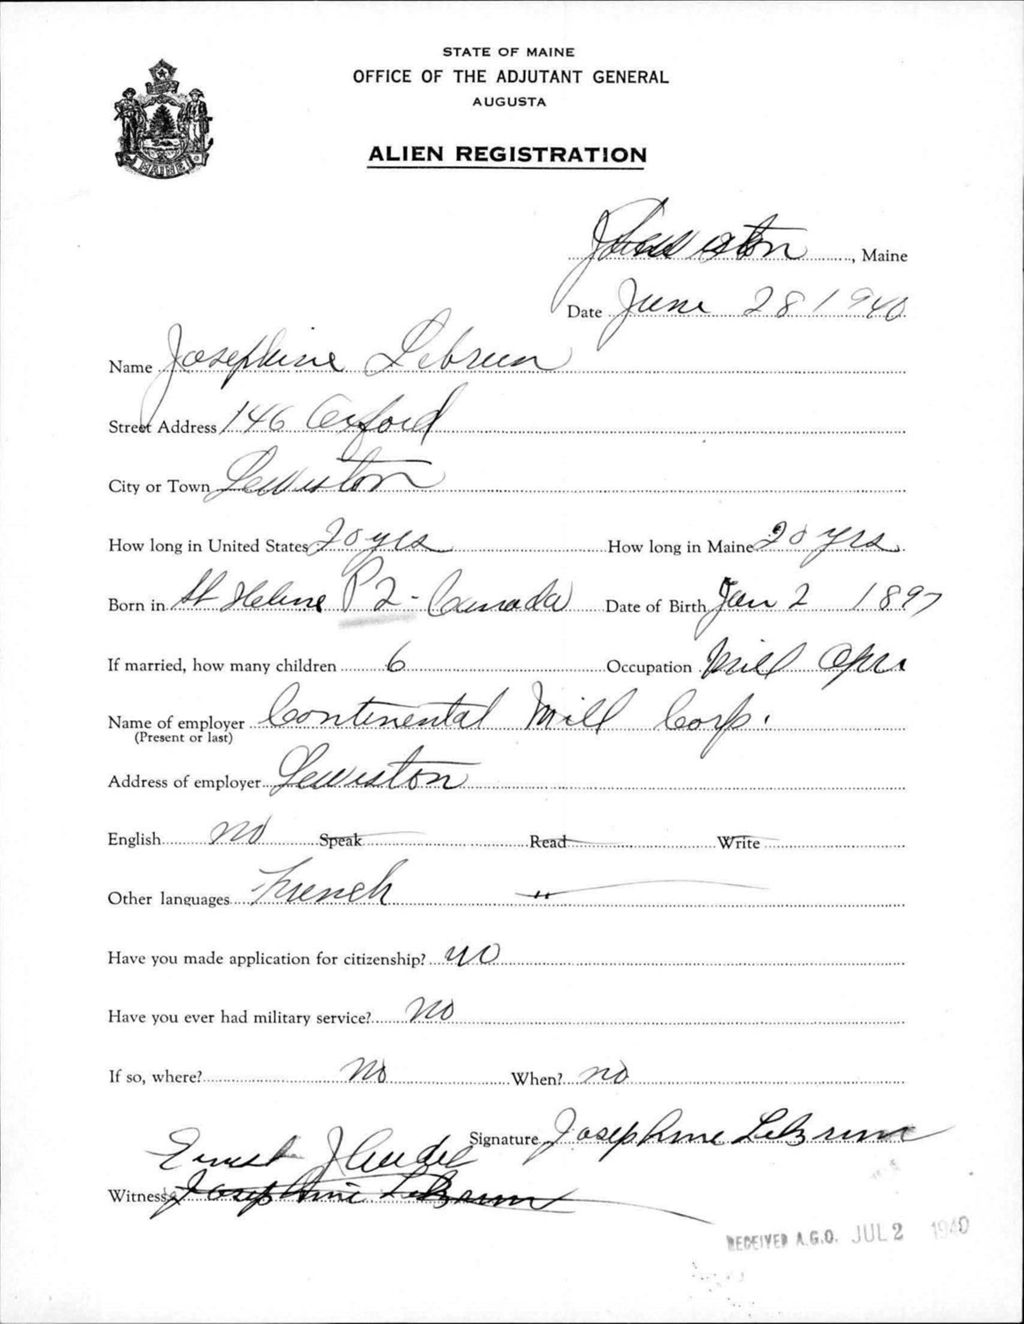 STATE OF MAINE
OFFICE OF THE ADJUTANT GENERAL
AUGUSTA
ALIEN REGISTRATION
MAINE
Lewiston, Maine
Date June 28 1940
Name Josephine Lebrun
Street Address 146 Oxford
City or Town Lewiston
How long in United States 20 yrs How long in Maine 20 yrs
Born in St Helene P Q - Canada Date of Birth Jan 2 1897
If married, how many children 6 Occupation Mill Opr.
Name of employer Continental Mill Corp.
(Present or last)
Address of employer Lewiston
English no Speak Read Write
Other languages French "
Have you made application for citizenship? no
Have you ever had military service? No
If so, where? No When? no
Signature Josephine LeBrun
Ernest
Witness Josephine LeBrun
RECEIVED A.G.O. JUL 2 1940